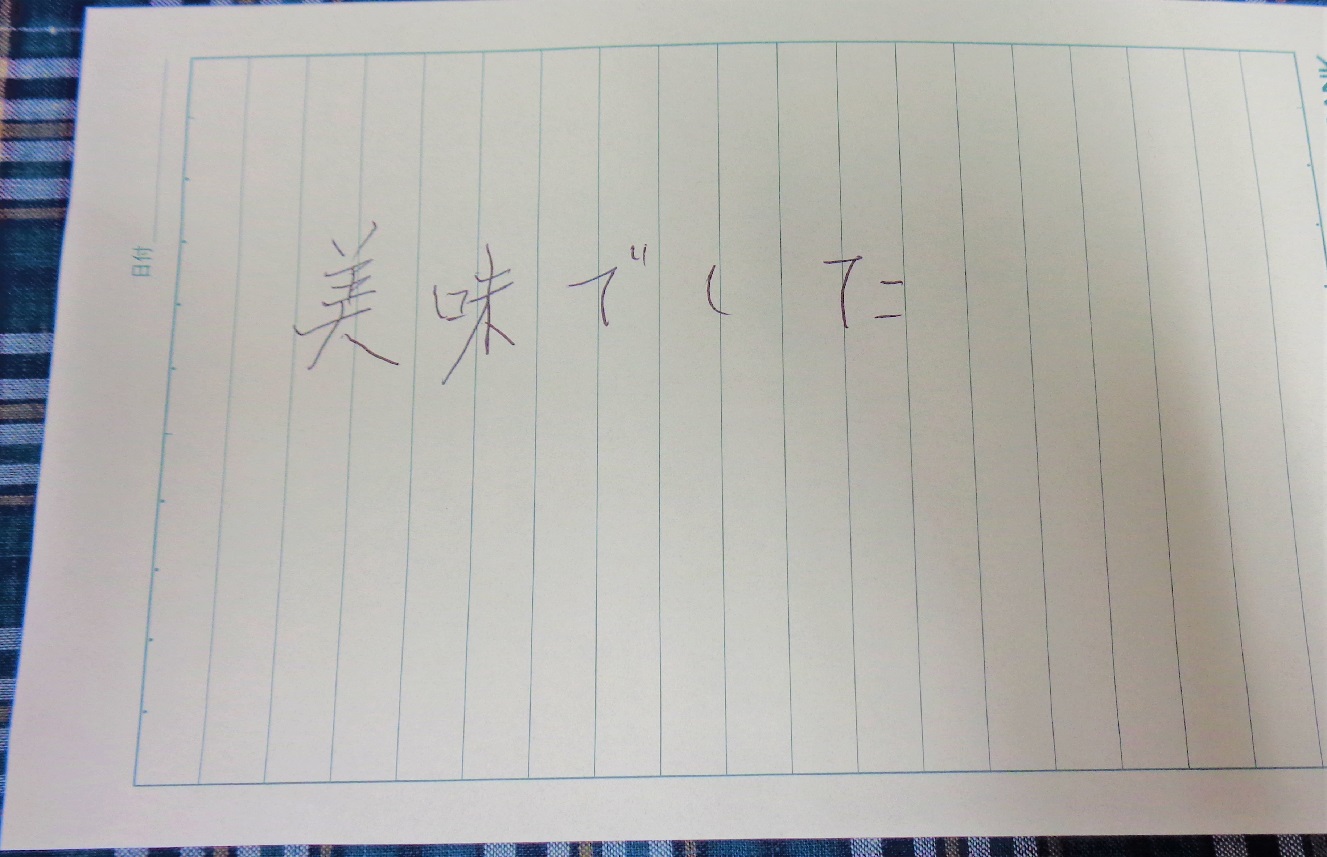 美味でした
日付